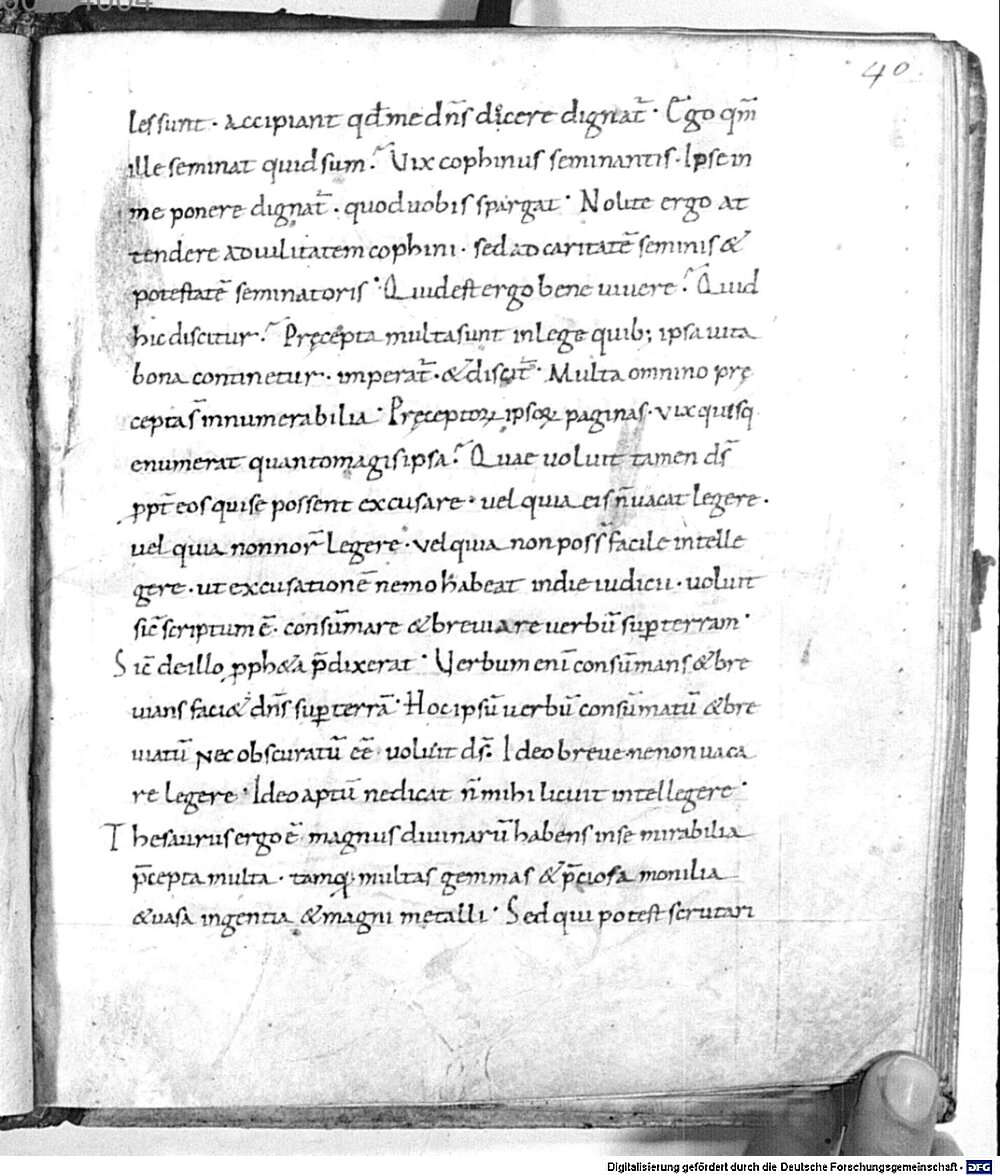 40
les sunt · accipiant qđ me dñs dicere dignat̄ · Ego qm̄
ille seminat quid sum? Vix cophinus seminantis · Ipse in
me ponere dignat̄ · quod uobis spargat · Nolite ergo at
tendere ad uilitatem cophini · sed ad caritatē seminis &
potestatē seminatoris · Quid est ergo bene uiuere? Quid
hic discitur? Pręcepta multa sunt in lege quib; ipsa uita
bona continetur · imperat̄ · & discit̄ · Multa omnino prę
cepta s̄ innumerabilia · Pręceptoꝝ ipsoꝝ paginas · vix quisq
enumerat quanto magis ipsa? Quae uoluit tamen d̄s
ppt̄ eos qui se possent excusare · uel quia eis n̄ uacat legere ·
uel quia non nor̄ legere · vel quia non poss̄ facile intelle
gere · ut excusationē nemo habeat in die iudicii · uoluit
sic̄ scriptum ē · consūmare & breuiare uerbū sup terram ·
Sic̄ de illo pph&a p̄dixerat · Uerbum enī consūmans & bre
uians faci& dn̄s sup terrā · Hoc ipsū uerbū consūmatū & bre
uiatū nec obscuratū eē uoluit d̄s · Ideo breue · ne non uaca
re legere · Ideo aptū ne dicat n̄ mihi licuit intellegere ·
Thesaurus ergo ē magnus diuinarū habens in se mirabilia
p̄cepta multa · tamq; multas gemmas & p̄ciosa monilia
& uasa ingentia & magni metalli · Sed qui potest scrutari
Digitalisierung gefördert durch die Deutsche Forschungsgemeinschaft - DFG